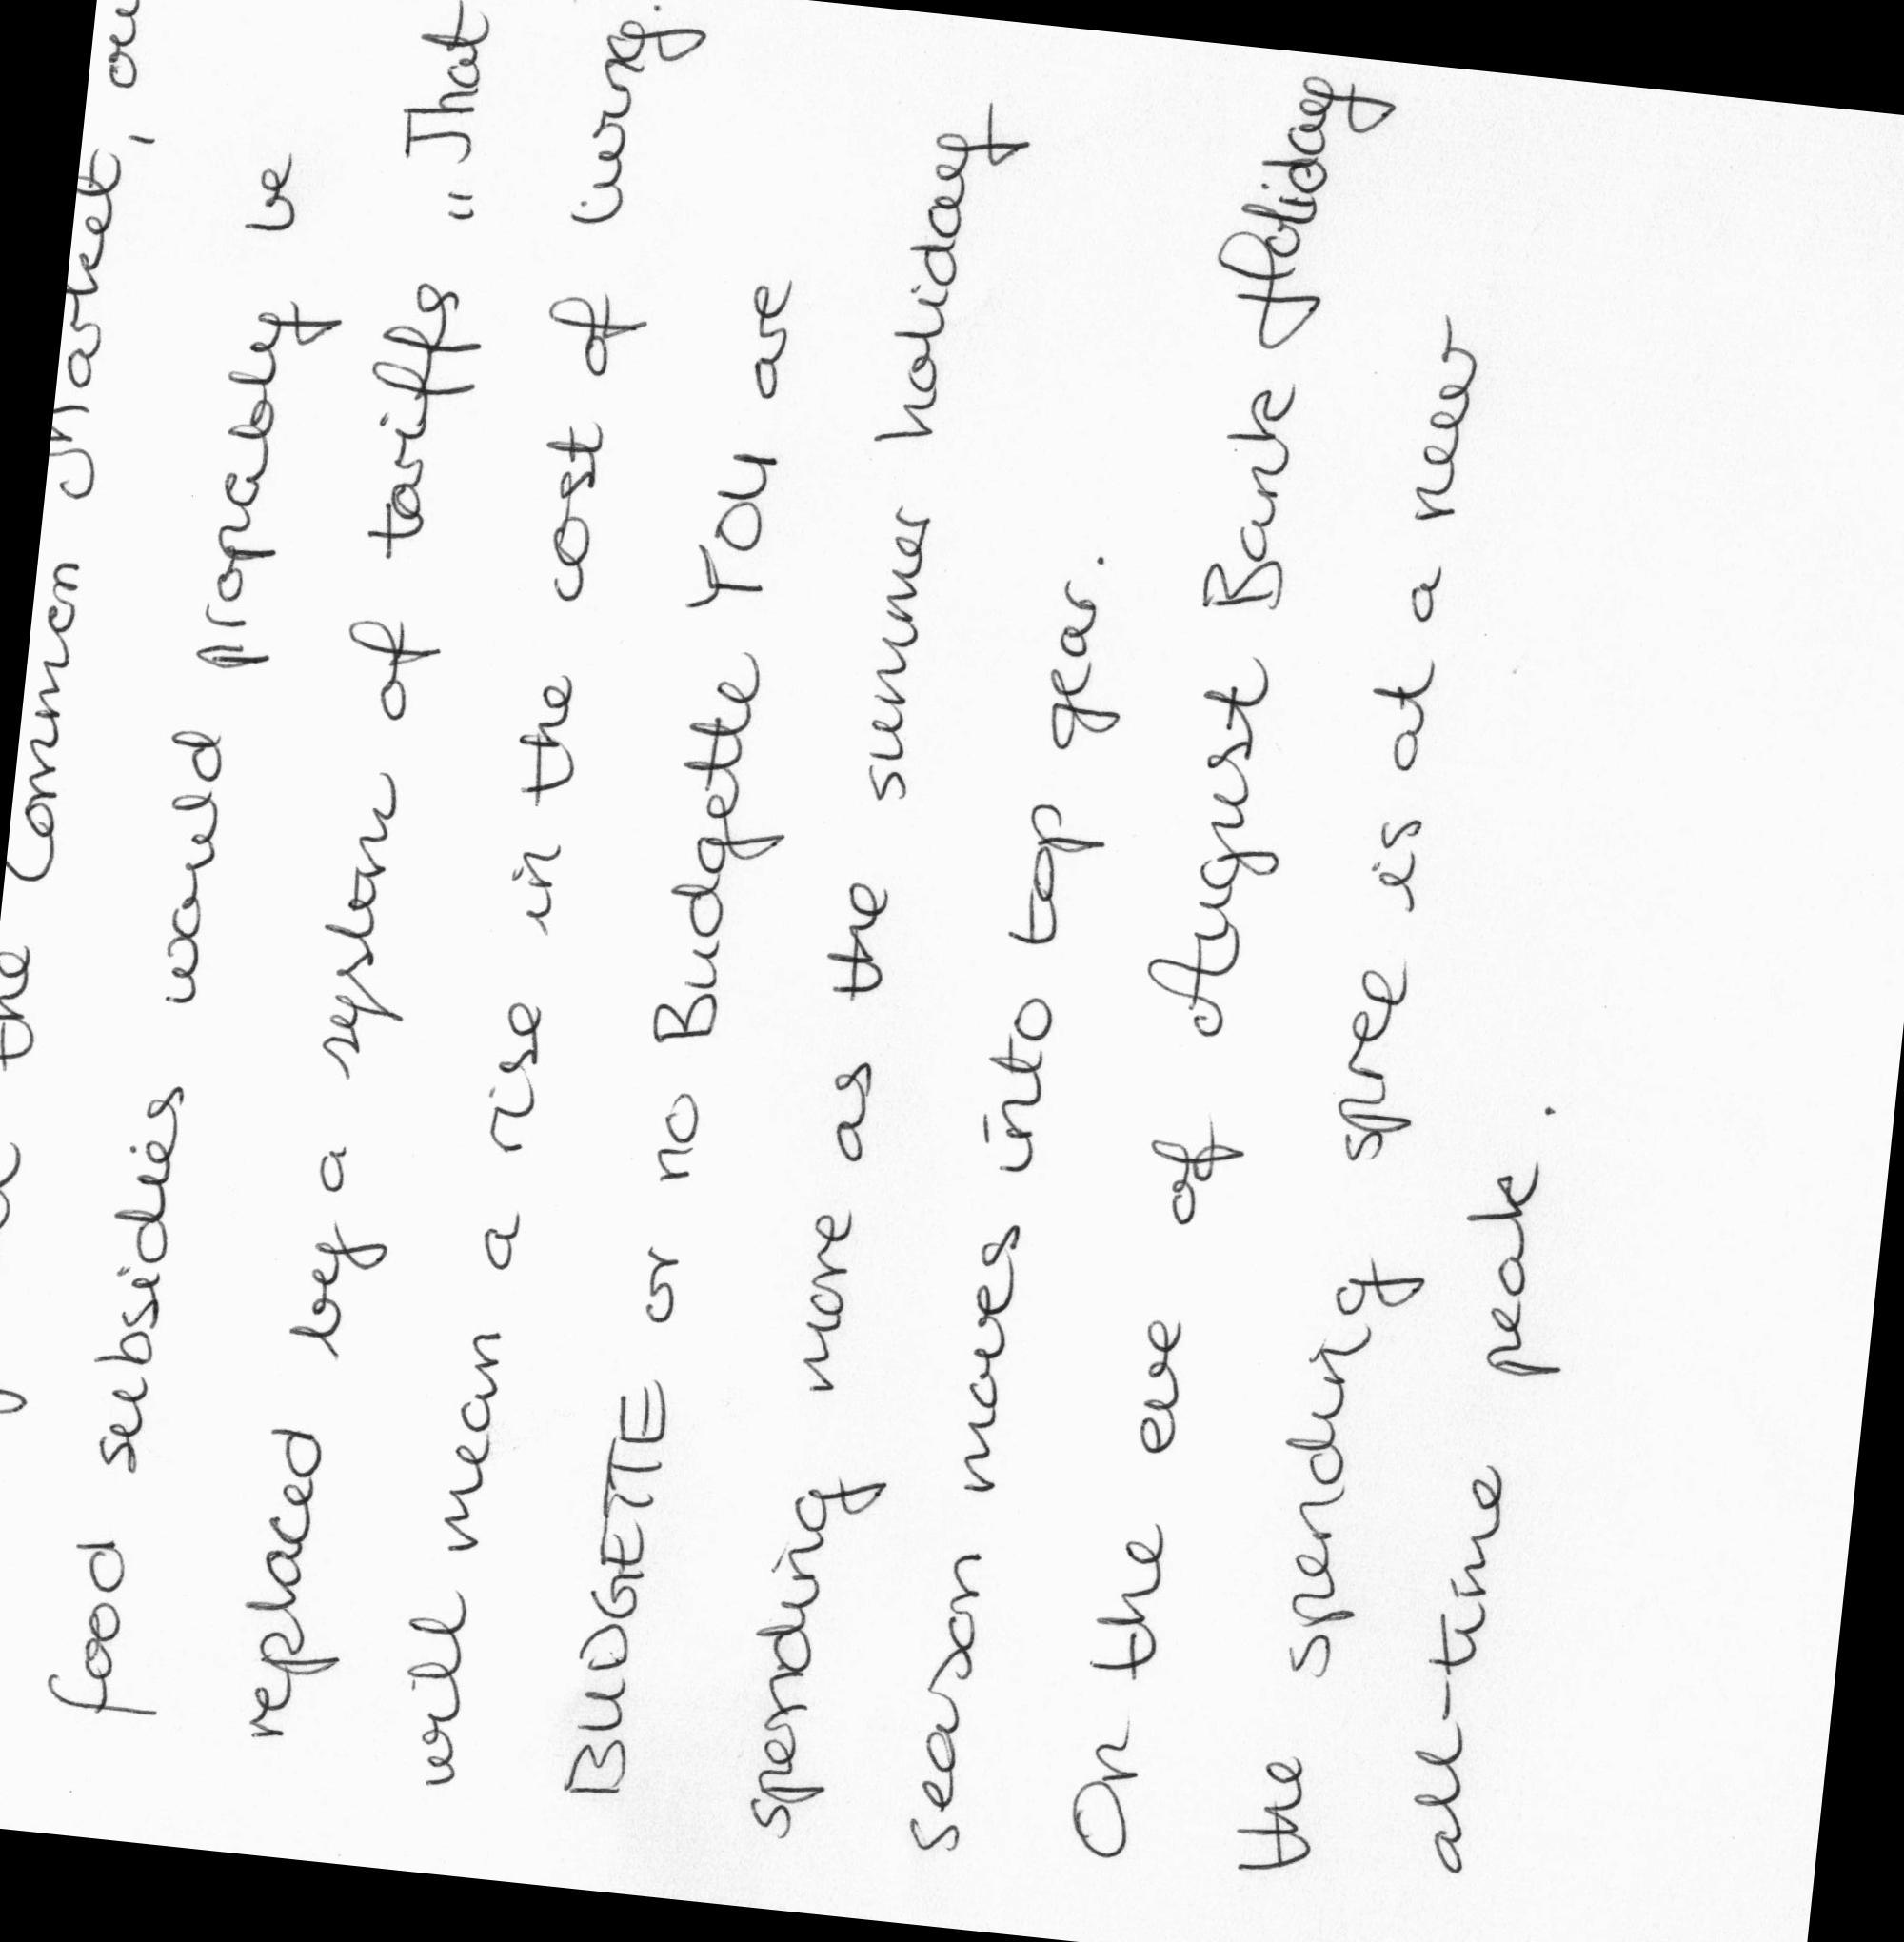 the Common Market, our
food subsidies would propably be
replaced by a system of tariffs " That
will mean a rise in the cost of living.
BUDGETTE or no Budgette YOU are
spending more as the summer holiday
season moves into top gear.
On the eve of August Bank Holiday
the spending spree is at a new
all-time peak.